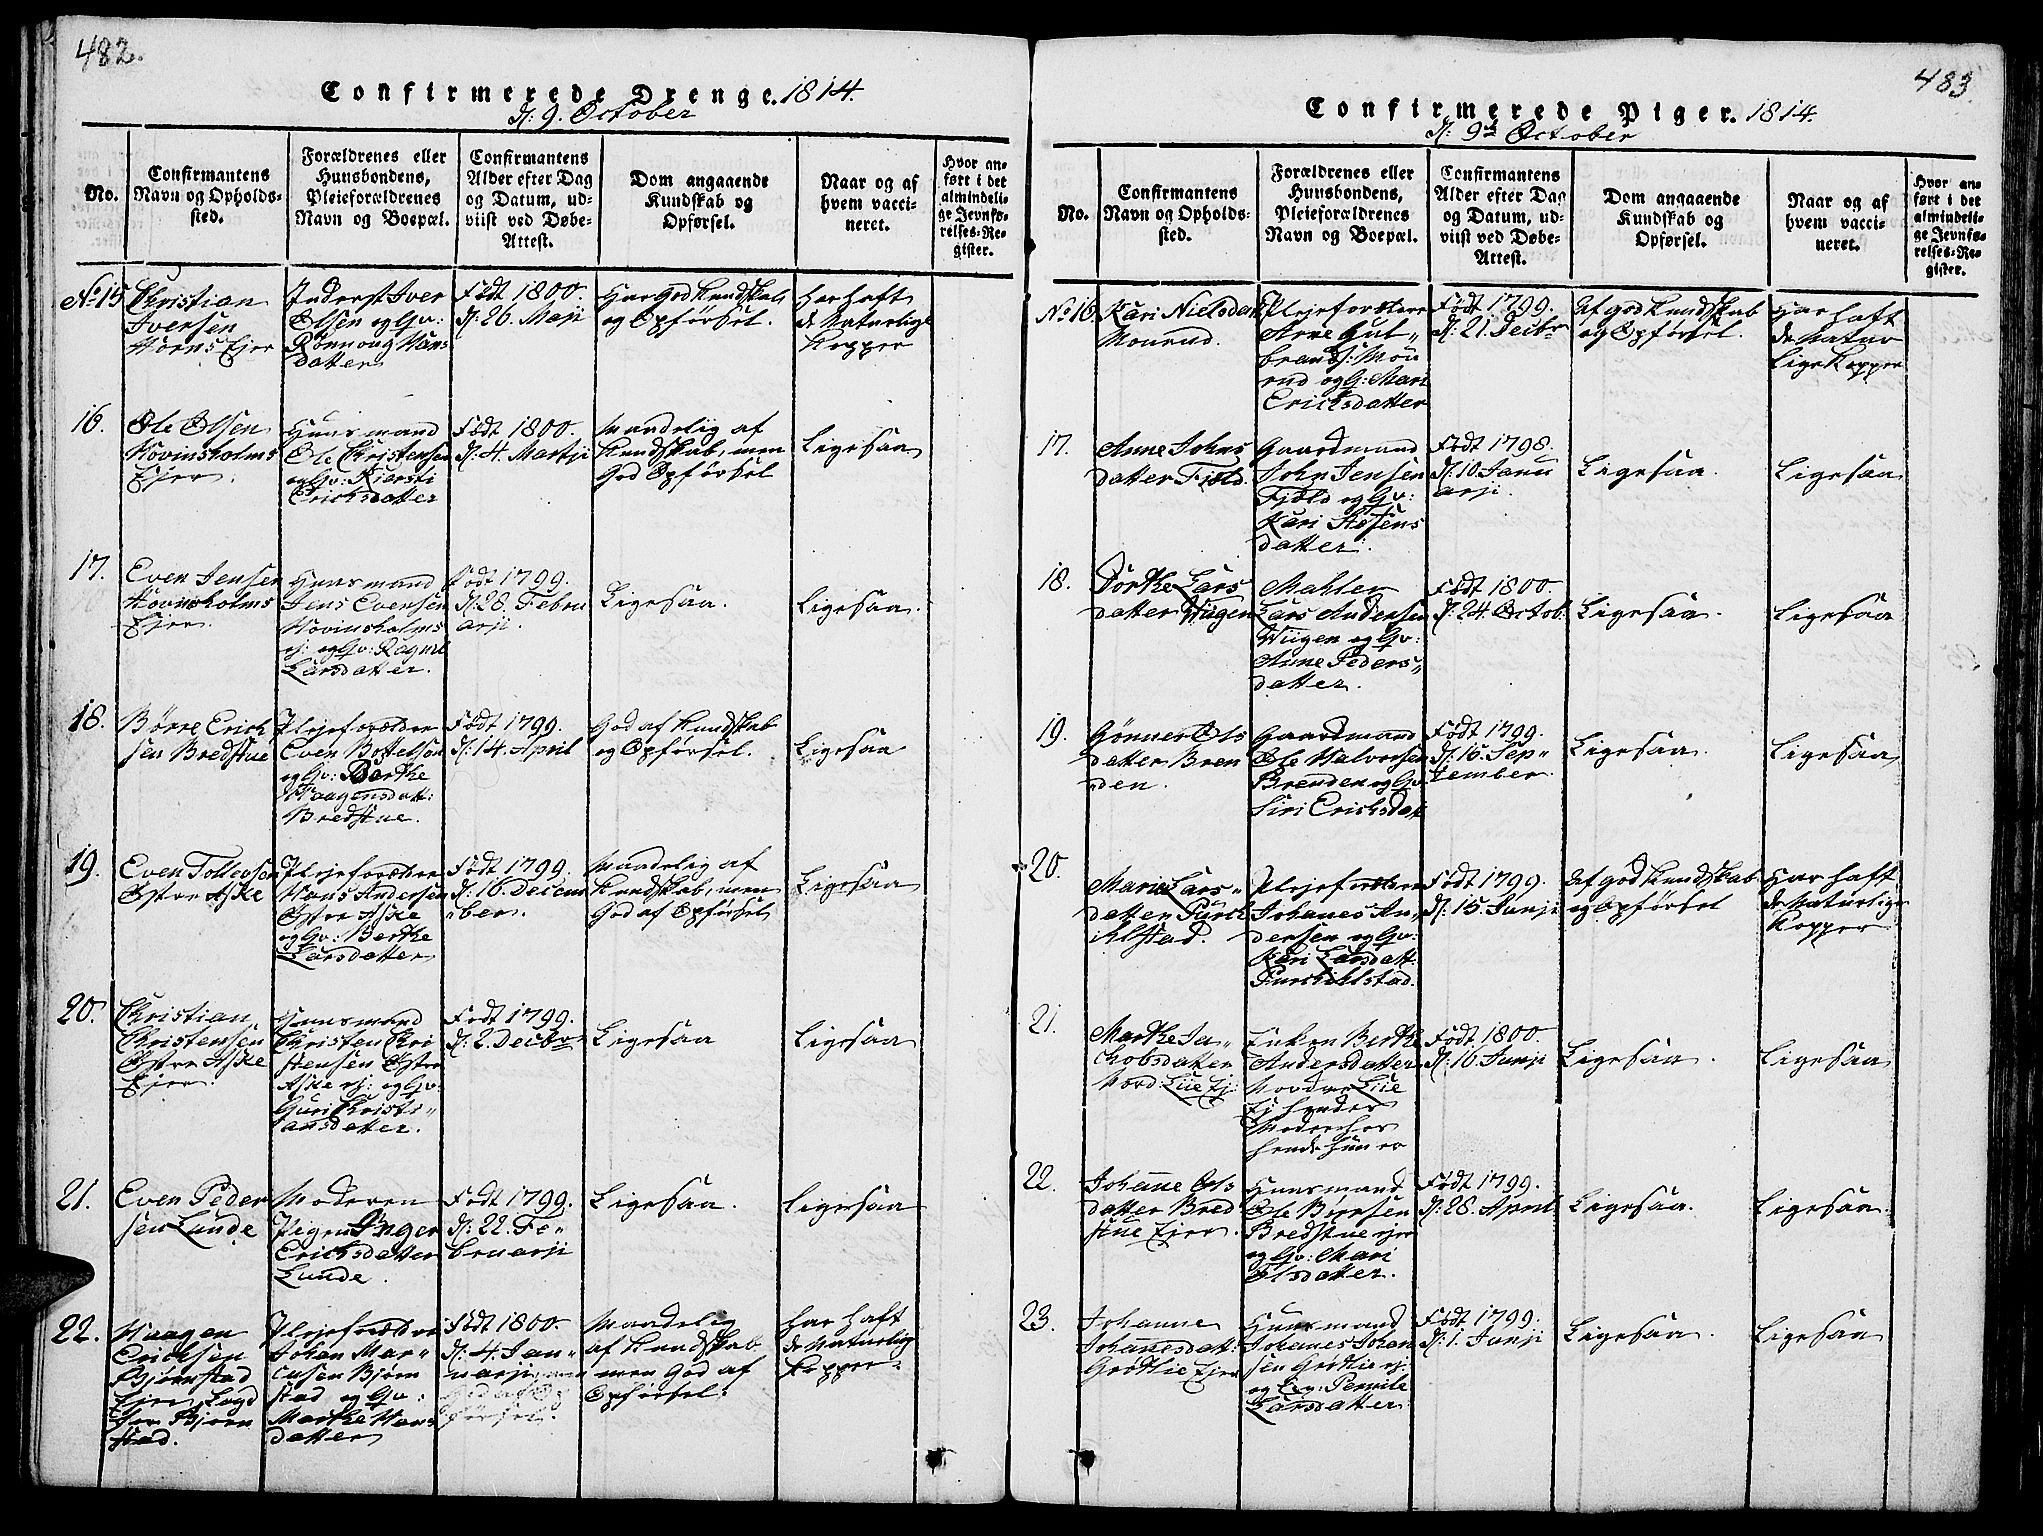 482.
Confirmerede Drenge. 1814.
d: 9. October
No.
Confirmantens
Navn og Opholds-
sted.
Forældrenes eller
Huusbondens,
Pleieforældrenes
Navn og Boepæl.
Confirmantens
Alder efter Dag
og Datum, ud-
viist ved Døbe-
Attest.
Dom angaaende
Kundskab og
Opførsel.
Naar og af
hvem vacci-
neret.
Hvor an-
ført i det
almindeli-
ge Jevnfø-
relses-Re-
gister.
No 15
Christian
Iversen
Horns Ejer
Inderst Iver
Olsen og Gv:
Rønnoug Hans
datter
Født 1800.
d: 26. Maji
Har god Kundskab
og Opførsel.
har haft
de Naturlige
Kopper
16.
Ole Olsen
Hovinsholms
Ejer.
Huusmand
Ole Christensen
og Gv: Kiersti
Erichsdatter
Født 1800.
d: 4. Martji
Maadelig af
Kundskab, men
God Opførsel
Ligesaa
17.
Even Jensen
Hovinsholms
Ejer.
Huusmand
Jens Evensen
Hovinsholms
ej: og Gv: Ragnil
Larsdatter.
Født 1799.
d: 28. Febru
arji.
Ligesaa.
Ligesaa.
18.
Børre Erich
sen Bredstue
Plejeforældre
Even Bottelsøn
og Gv: Berthe
Haagensdatt:
Bredstue.
Født 1799.
d: 14. April
God af Kundskab
og Opførsel.
Ligesaa
19.
Even Tollevsen
Østre Aske
Plejeforældre
Hans Andersen
Østre Aske
og Gv: Berthe
Larsdatter
Født 1799.
d: 16. Decem
"ber.
Maadelig af
Kundskab, men
God af Opførsel
Ligesaa
20.
Christian
Christensen
Østre Aske
Ejer.
Huusmand
Christen Chri
stensen Østre
Aske ej: og Gv:
Guri Christi"
ansdatter.
Født 1799.
d: 2. Decbr
Ligesaa
Ligesaa
21.
Even Peder
sen Lunde
Moderen
Pigen Inger
Erichsdatter
Lunde.
Født 1799.
d: 22. Fe"
bruarji
Ligesaa.
Ligesaa
22.
Haagen
Erichsen
Bjørnstad
Ejer
for Bjørn
stad.
Plejeforældre
Johan Mar"
cusen Bjørn
stad og Gv:
Marthe Hans
datter
Født 1800.
d: 4. Jan"
uarji
Maadelig
af Kundskab
men God af
Opførsel.
har haft
de Naturlig
Kopper
483.
Confirmerede Piger. 1814.
d: 9de October
No.
Confirmantens
Navn og Opholds-
sted.
Forældrenes eller
Huusbondens,
Pleieforældrenes
Navn og Boepæl.
Confirmantens
Alder efter Dag
og Datum, ud-
viist ved Døbe-
Attest.
Dom angaaende
Kundskab og
Opførsel.
Naar og af
hvem vacci-
neret.
Hvor an-
ført i det
almindeli-
ge Jevnfø-
relses-Re-
gister.
No 16
Kari Nielsdat
Mourud.
Plejeforældre
Arne Gul"
brands: Mou
rud og G: Mari
Erichsdatter
Født 1799.
d: 21. Decbr
Af god Kundskab
og Opførsel.
Har haft
de Natur
lige Kopper
17.
Anne Johns
datter Fjeld.
Gaardmand
John Jensen
Fjeld og Gv:
Kari
datter.
Født 1798.
d: 10. Janu
arji.
Ligesaa.
Ligesaa
18.
Dorthe Lars
datter Wiigen
Mahler
Lars Andersen
Wiigen og Gv:
Anne Peders"
datter.
Født 1800.
d: 24. Octob.
Ligesaa.
Ligesaa
19.
Gønner Ols
datter Bren
den.
Gaardmand
Ole Halvorsen
Brenden og Gv
Siri Erichsdat
Født 1799.
d: 16. Sep"
tember.
Ligesaa.
Ligesaa
20.
Maria Lars"
datter Purch
ihlstad.
Plejeforældre
Johanes An"
dersen og Gv:
Kari Larsdatt:
Purchihlstad.
Født 1799.
d: 15. Junji
Af god Kundskab
og Opførsel
Har haft
de Naturlige
Kopper
21.
Marthe Ja"
chobsdatter
Nord: Liie Ej:
Enken Berthe
Andersdatter
Nordre Liie
Ej hendes
Moder hos
hende hun er
Født 1800.
d: 16. Junji
Ligesaa.
Ligesaa
22.
Johanne Ols
datter Bred
stue Ejer.
Huusmand
Ole Børrsen
Bredstue ejer
og Gv: Mari
Olsdatter.
Født 1799.
d: 28. April
Ligesaa.
Ligesaa.
23.
Johanne
Johanesdatt:
Grøtlie Ejer
Huusmand
Johanes Johan
sen Grøtlie ej:
og Gv: Pernile
Larsdatter
Født 1799.
d: 1. Junji
Ligesaa.
Ligesaa